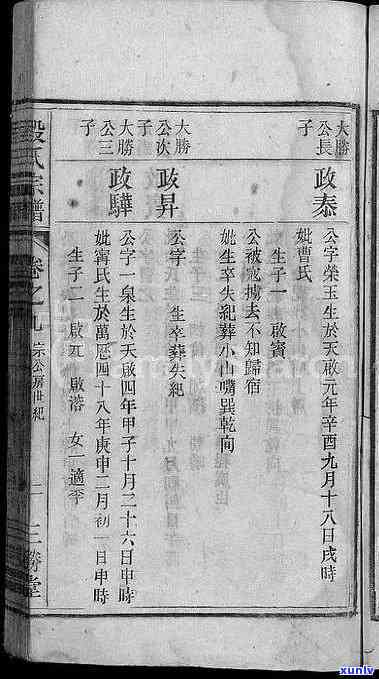 大勝公長子
政泰
公字榮玉生於天啟元年辛酉九月十八日戌時
妣曹氏
生子一 啟賓
公被寇擄去不知歸宿
妣生卒失紀葬小山嘴巽乾向
大勝公次子
政昇
公字 生卒葬失紀
大勝公三子
政驊
公字一泉生於天啟四年甲子十月二十六日申時
妣甯氏生於萬厯四十八年庚申二月初一日申時
生子二 啟 啟濬 女一適李
段氏宗譜
卷之九
宗公房世紀
二
三勝堂
xunlv